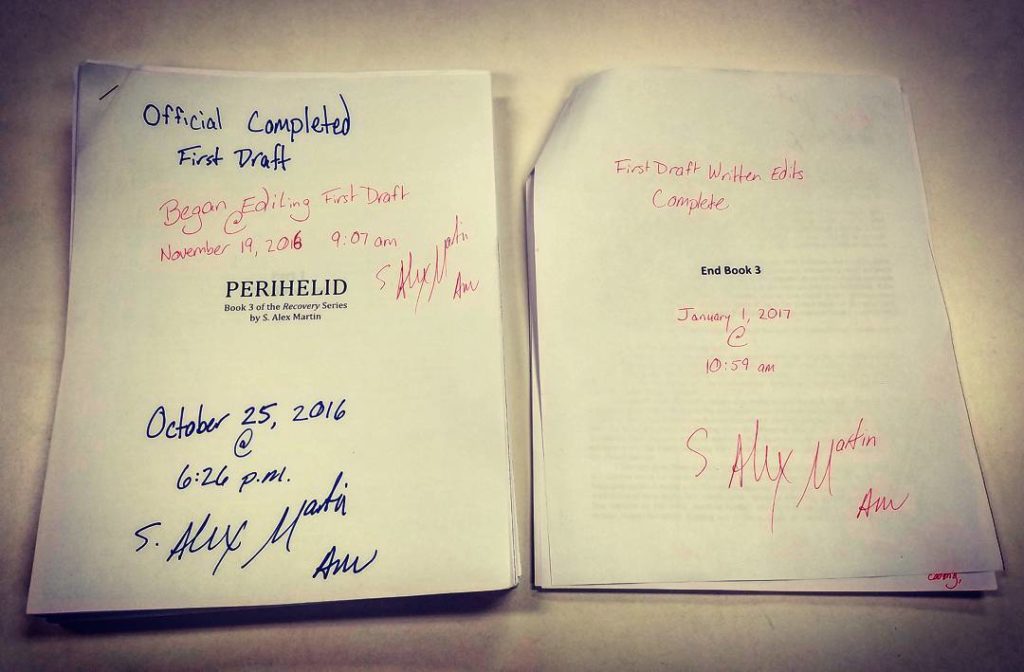 Official Completed
First Draft
Began Editing First Draft
@
November 19, 2016 9:07 am
S Alex Martin
PERIHELID
Book 3 of the Recovery Series
by S. Alex Martin
October 25, 2016
@
6:26 p.m.
S. Alex Martin
First Draft Written Edits
Complete
End Book 3
January 1, 2017
@
10:59 am
S. Alex Martin